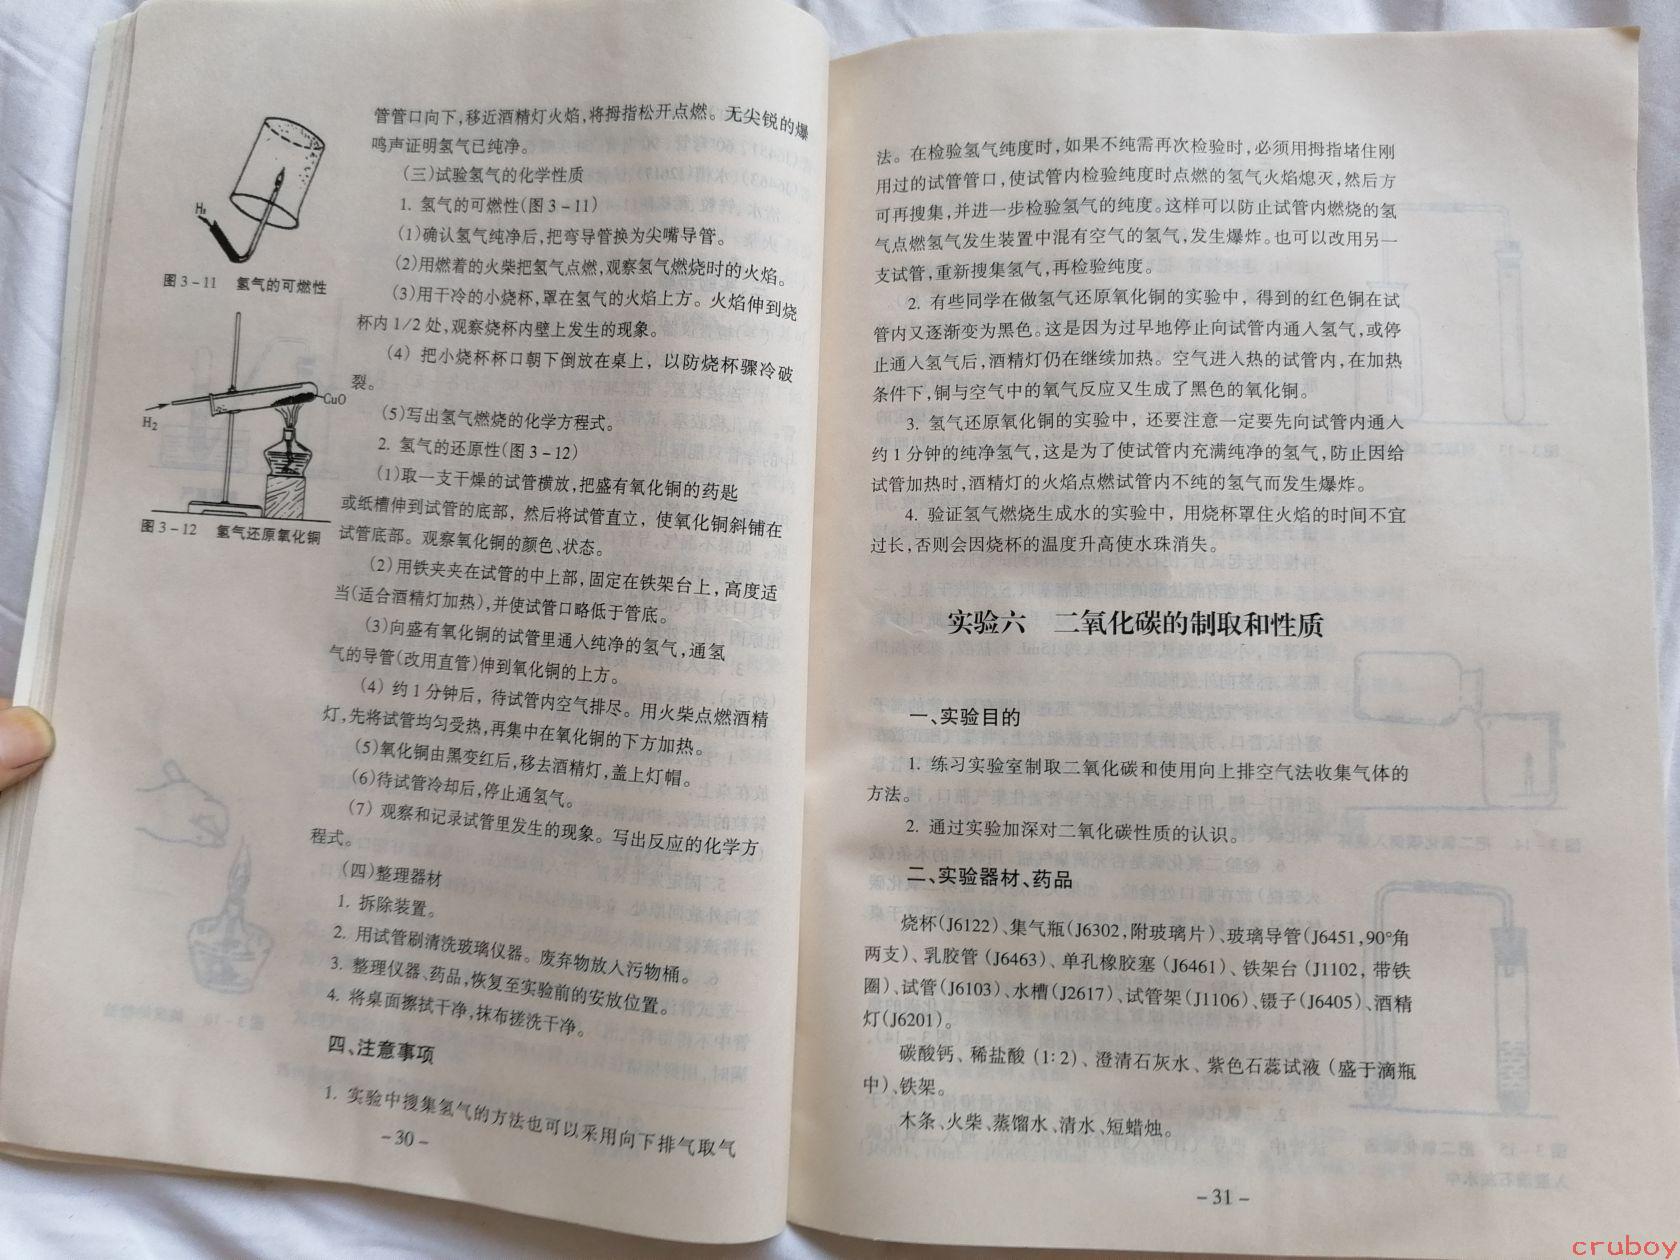 管管口向下,移近酒精灯火焰,将拇指松开点燃。无尖锐的爆
鸣声证明氢气已纯净。
(三)试验氢气的化学性质
1. 氢气的可燃性(图3-11)
(1)确认氢气纯净后,把弯导管换为尖嘴导管。
(2)用燃着的火柴把氢气点燃,观察氢气燃烧时的火焰。
(3)用干冷的小烧杯,罩在氢气的火焰上方。火焰伸到烧
杯内1/2处,观察烧杯内壁上发生的现象。
(4) 把小烧杯杯口朝下倒放在桌上, 以防烧杯骤冷破
裂。
(5)写出氢气燃烧的化学方程式。
2. 氢气的还原性(图3-12)
(1)取一支干燥的试管横放,把盛有氧化铜的药匙
或纸槽伸到试管的底部, 然后将试管直立, 使氧化铜斜铺在
试管底部。观察氧化铜的颜色、状态。
(2)用铁夹夹在试管的中上部,固定在铁架台上,高度适
当(适合酒精灯加热),并使试管口略低于管底。
(3)向盛有氧化铜的试管里通入纯净的氢气,通氢
气的导管(改用直管)伸到氧化铜的上方。
(4) 约1分钟后, 待试管内空气排尽。用火柴点燃酒精
灯,先将试管均匀受热,再集中在氧化铜的下方加热。
(5)氧化铜由黑变红后,移去酒精灯,盖上灯帽。
(6)待试管冷却后,停止通氢气。
(7) 观察和记录试管里发生的现象。写出反应的化学方
程式。
(四)整理器材
1. 拆除装置。
2. 用试管刷清洗玻璃仪器。废弃物放入污物桶。
3. 整理仪器、药品,恢复至实验前的安放位置。
4. 将桌面擦拭干净,抹布搓洗干净。
四、注意事项
1. 实验中搜集氢气的方法也可以采用向下排气取气
-30-
H₂
图3-11 氢气的可燃性
CuO
H₂
图3-12 氢气还原氧化铜
法。在检验氢气纯度时,如果不纯需再次检验时,必须用拇指堵住刚
用过的试管管口,使试管内检验纯度时点燃的氢气火焰熄灭,然后方
可再搜集,并进一步检验氢气的纯度。这样可以防止试管内燃烧的氢
气点燃氢气发生装置中混有空气的氢气,发生爆炸。也可以改用另一
支试管,重新搜集氢气,再检验纯度。
2. 有些同学在做氢气还原氧化铜的实验中, 得到的红色铜在试
管内又逐渐变为黑色。这是因为过早地停止向试管内通入氢气,或停
止通入氢气后,酒精灯仍在继续加热。空气进入热的试管内,在加热
条件下,铜与空气中的氧气反应又生成了黑色的氧化铜。
3. 氢气还原氧化铜的实验中, 还要注意一定要先向试管内通入
约1分钟的纯净氢气,这是为了使试管内充满纯净的氢气,防止因给
试管加热时,酒精灯的火焰点燃试管内不纯的氢气而发生爆炸。
4. 验证氢气燃烧生成水的实验中, 用烧杯罩住火焰的时间不宜
过长,否则会因烧杯的温度升高使水珠消失。
实验六 二氧化碳的制取和性质
一、实验目的
1. 练习实验室制取二氧化碳和使用向上排空气法收集气体的
方法。
2. 通过实验加深对二氧化碳性质的认识。
二、实验器材、药品
烧杯(J6122)、集气瓶(J6302,附玻璃片)、玻璃导管(J6451,90°角
两支)、乳胶管(J6463)、单孔橡胶塞(J6461)、铁架台(J1102,带铁
圈)、试管(J6103)、水槽(J2617)、试管架(J1106)、镊子(J6405)、酒精
灯(J6201)。
碳酸钙、稀盐酸(1:2)、澄清石灰水、紫色石蕊试液(盛于滴瓶
中)、铁架。
木条、火柴、蒸馏水、清水、短蜡烛。
-31-
cruboy